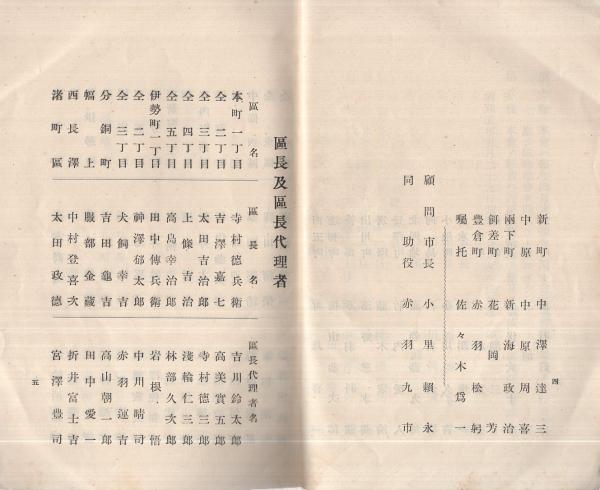 新町 中澤達三
中原 中原周喜
兩下町 新海政治
餌差町 花岡芳
豊倉町 赤羽松躬
囑托 佐々木爲一
顧問市長 小里賴永
同助役 赤羽九市
四
區長及區長代理者
區名 區長名 區長代理者名
本町一丁目 寺村德兵衛 吉川鈴太郎
仝二丁目 吉澤嘉七 高美實五郎
仝三丁目 太田吉治郎 寺村德三郎
仝四丁目 上條吉治 淺輪仁三郎
仝五丁目 高島幸治郎 林部久次郎
伊勢町一丁目 田中傳兵衛 岩根悟
仝二丁目 神澤郁太郎 中川晴司
仝三丁目 犬飼幸吉 赤羽運吉
分銅町 吉田龜吉 高山朝一郎
幅上 服部金藏 田中愛一
西長澤 中村登喜次 折井富士吉
渚町區 太田政德 宮澤豊司
五